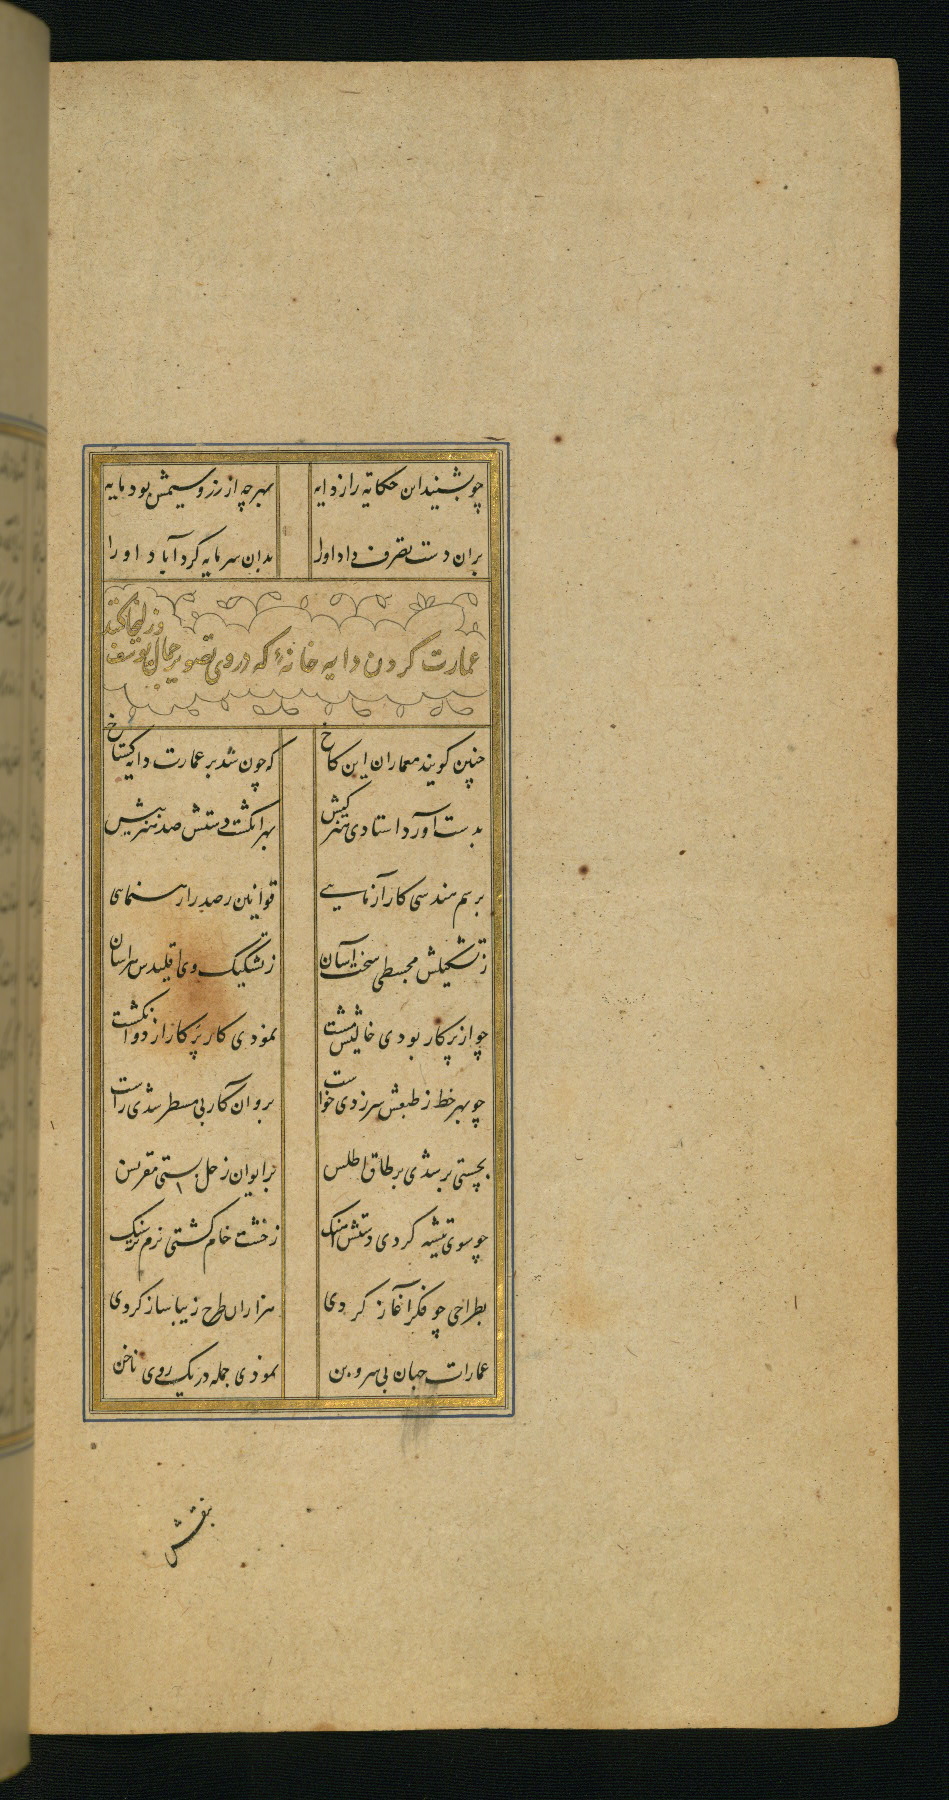 چو بشنید این حکایه را ز دایه بهر چه از زر و سیمش بود مایه
بران دست تصرف داد او را بدان سرمایه کرد آباد او را
عمارت کردن دایه خانهٔ که در وی تصویر جمال یوسف
و زلیخا کند
چنین کویند معماران این کاخ که چون شد بر عمارت دایه کستاخ
بدست آورد استادی هنر کیش بهر انکشت دستش صد هنر بیش
برسم هندسی کار آزمایی قوانین رصد را رهنمای
ز تشکیلش مجسطی سخت آسان ز تشکیک وی اقلیدس هراسان
چو از پرکار بودی خالیش مشت نمودی کار پرکار از دو انکشت
چو بهر خط ز طبعش سر زدی خواست بر وان کار بی مسطر شدی راست
بجستی بر شدی بر طاق اطلس بر ایوان زحل بستی مقرنس
چو سوی تیشه کردی دستش آهنک ز خشت خام کشتی نرم تر سنک
بطراحی چو فکر آغاز کردی هزاران طرح زیبا ساز کردی
عمارات جهان بی سر و بن نمودی جمله در یک روی ناخن
بنقش